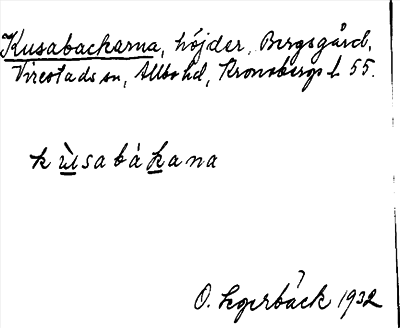 Kusabackarna, höjder, Bergsgård,
Virestads sn, Allbo hd, Kronobergs l. 55.
kùsabákana
O. Legerbäck 1932